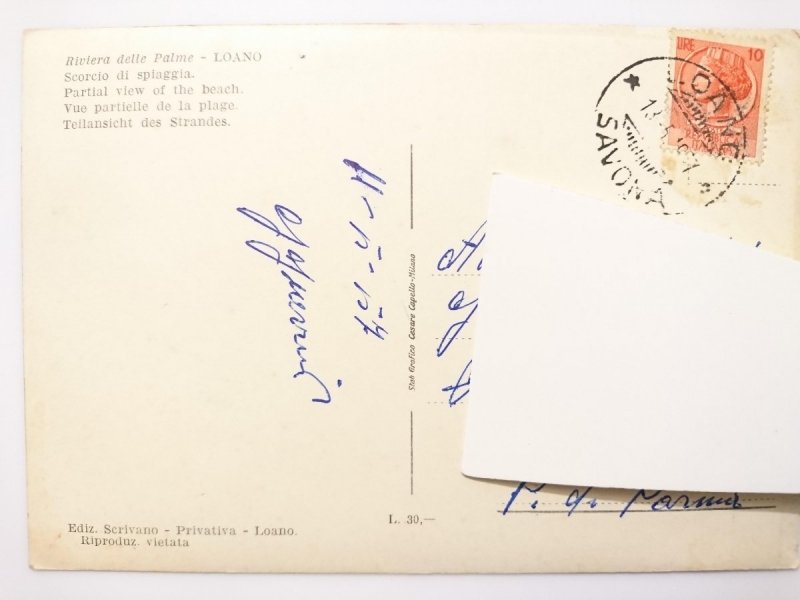 Riviera delle Palme - LOANO
Scorcio di spiaggia.
Partial view of the beach.
Vue partielle de la plage.
Teilansicht des Strandes.
LIRE 10
LOANO
SAVONA
Stab Grafico Cesare Capello-Milano
P. di Parma
L. 30,—
Ediz. Scrivano - Privativa - Loano.
Riproduz. vietata